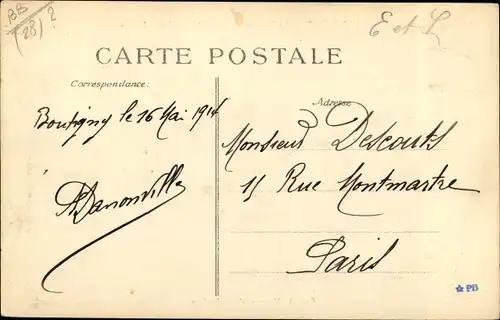 BB
(28) 2
E et L
CARTE POSTALE
Correspondance:
Adresse
Boutigny le 16 Mai 1914
Monsieur Descouts
15 Rue Montmartre
Paris
PB